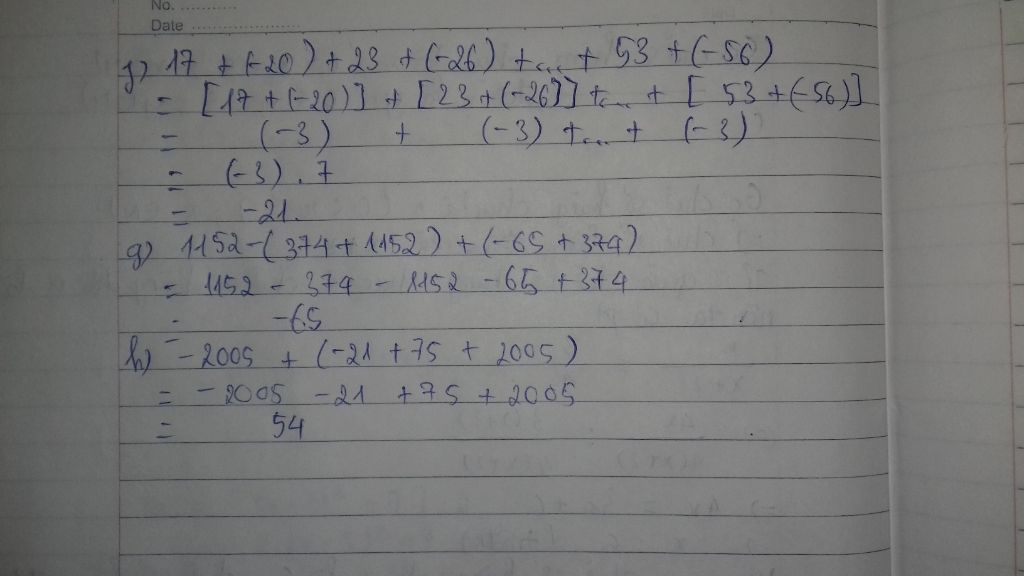 No. ...........
Date ......................
f) 17 + (-20) + 23 + (-26) + ... + 53 + (-56)
= [17 + (-20)] + [23 + (-26)] + ... + [53 + (-56)]
= (-3) + (-3) + ... + (-3)
= (-3) . 7
= -21.
g) 1152 - (374 + 1152) + (-65 + 374)
= 1152 - 374 - 1152 - 65 + 374
= -65
h) -2005 + (-21 + 75 + 2005)
= -2005 - 21 + 75 + 2005
= 54